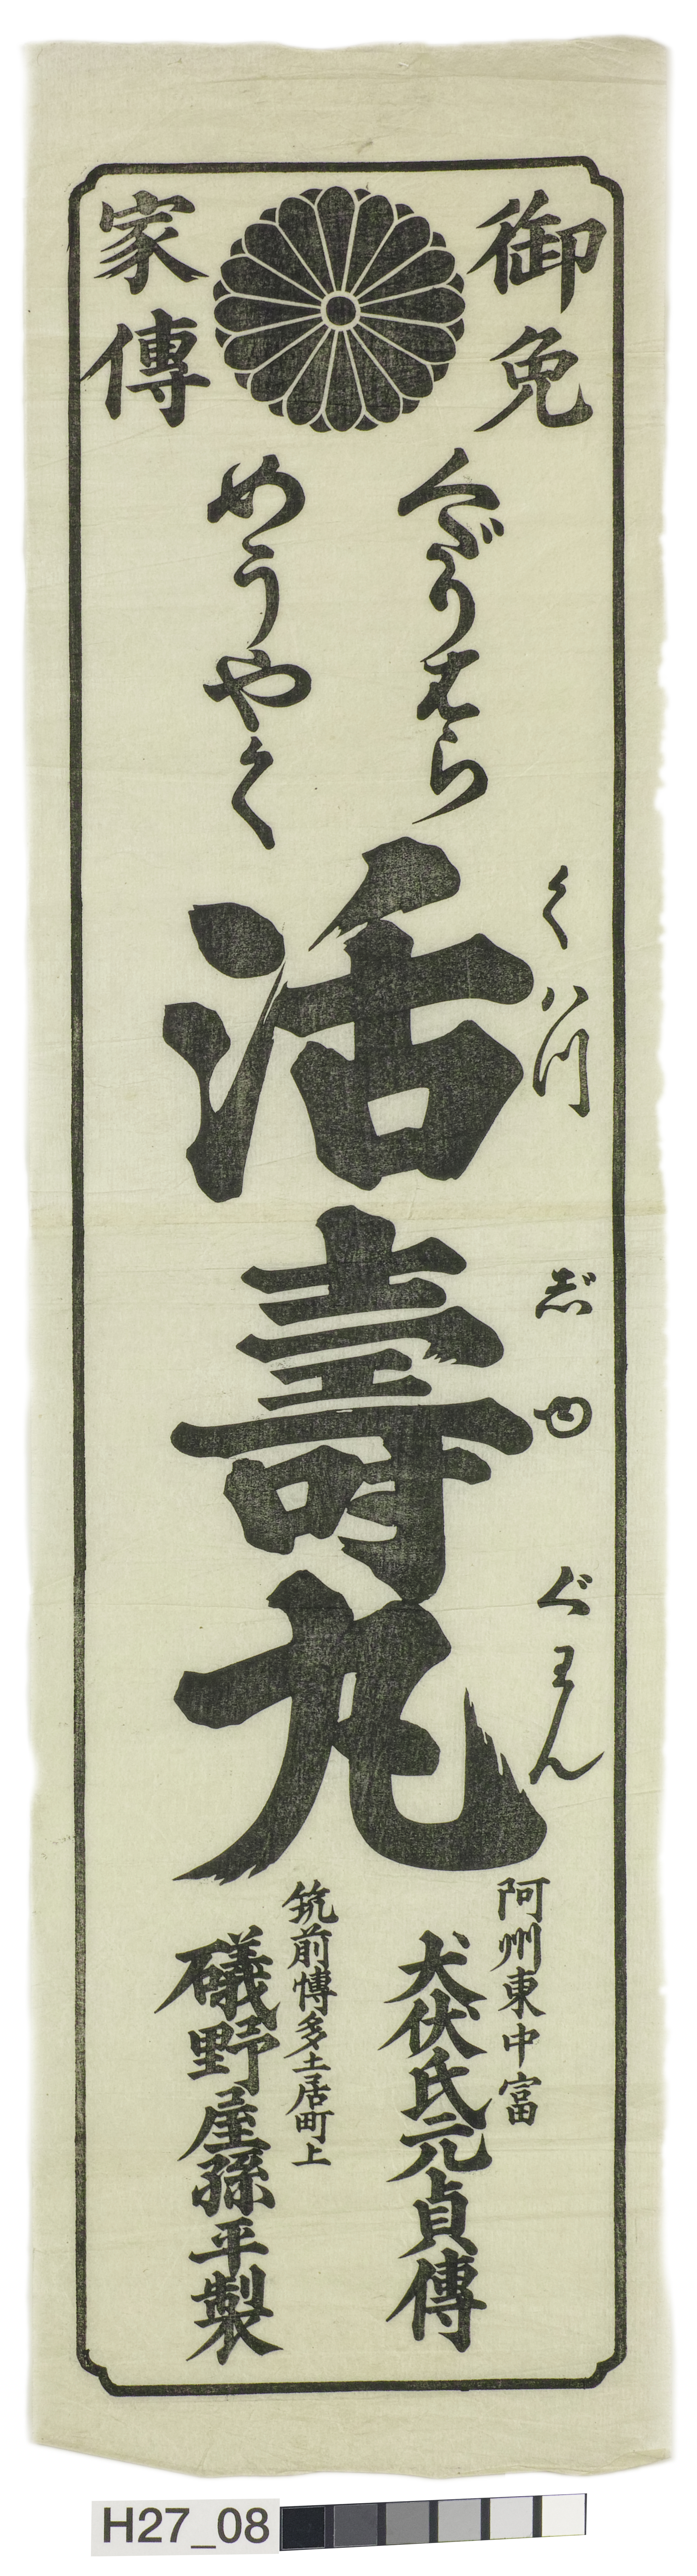 御免
家傳
くだりはら
めうやく
くハつ
じゆ
ぐわん
活壽丸
阿州東中富
犬伏氏元貞傳
筑前博多土居町上
礒野屋孫平製
H27_08